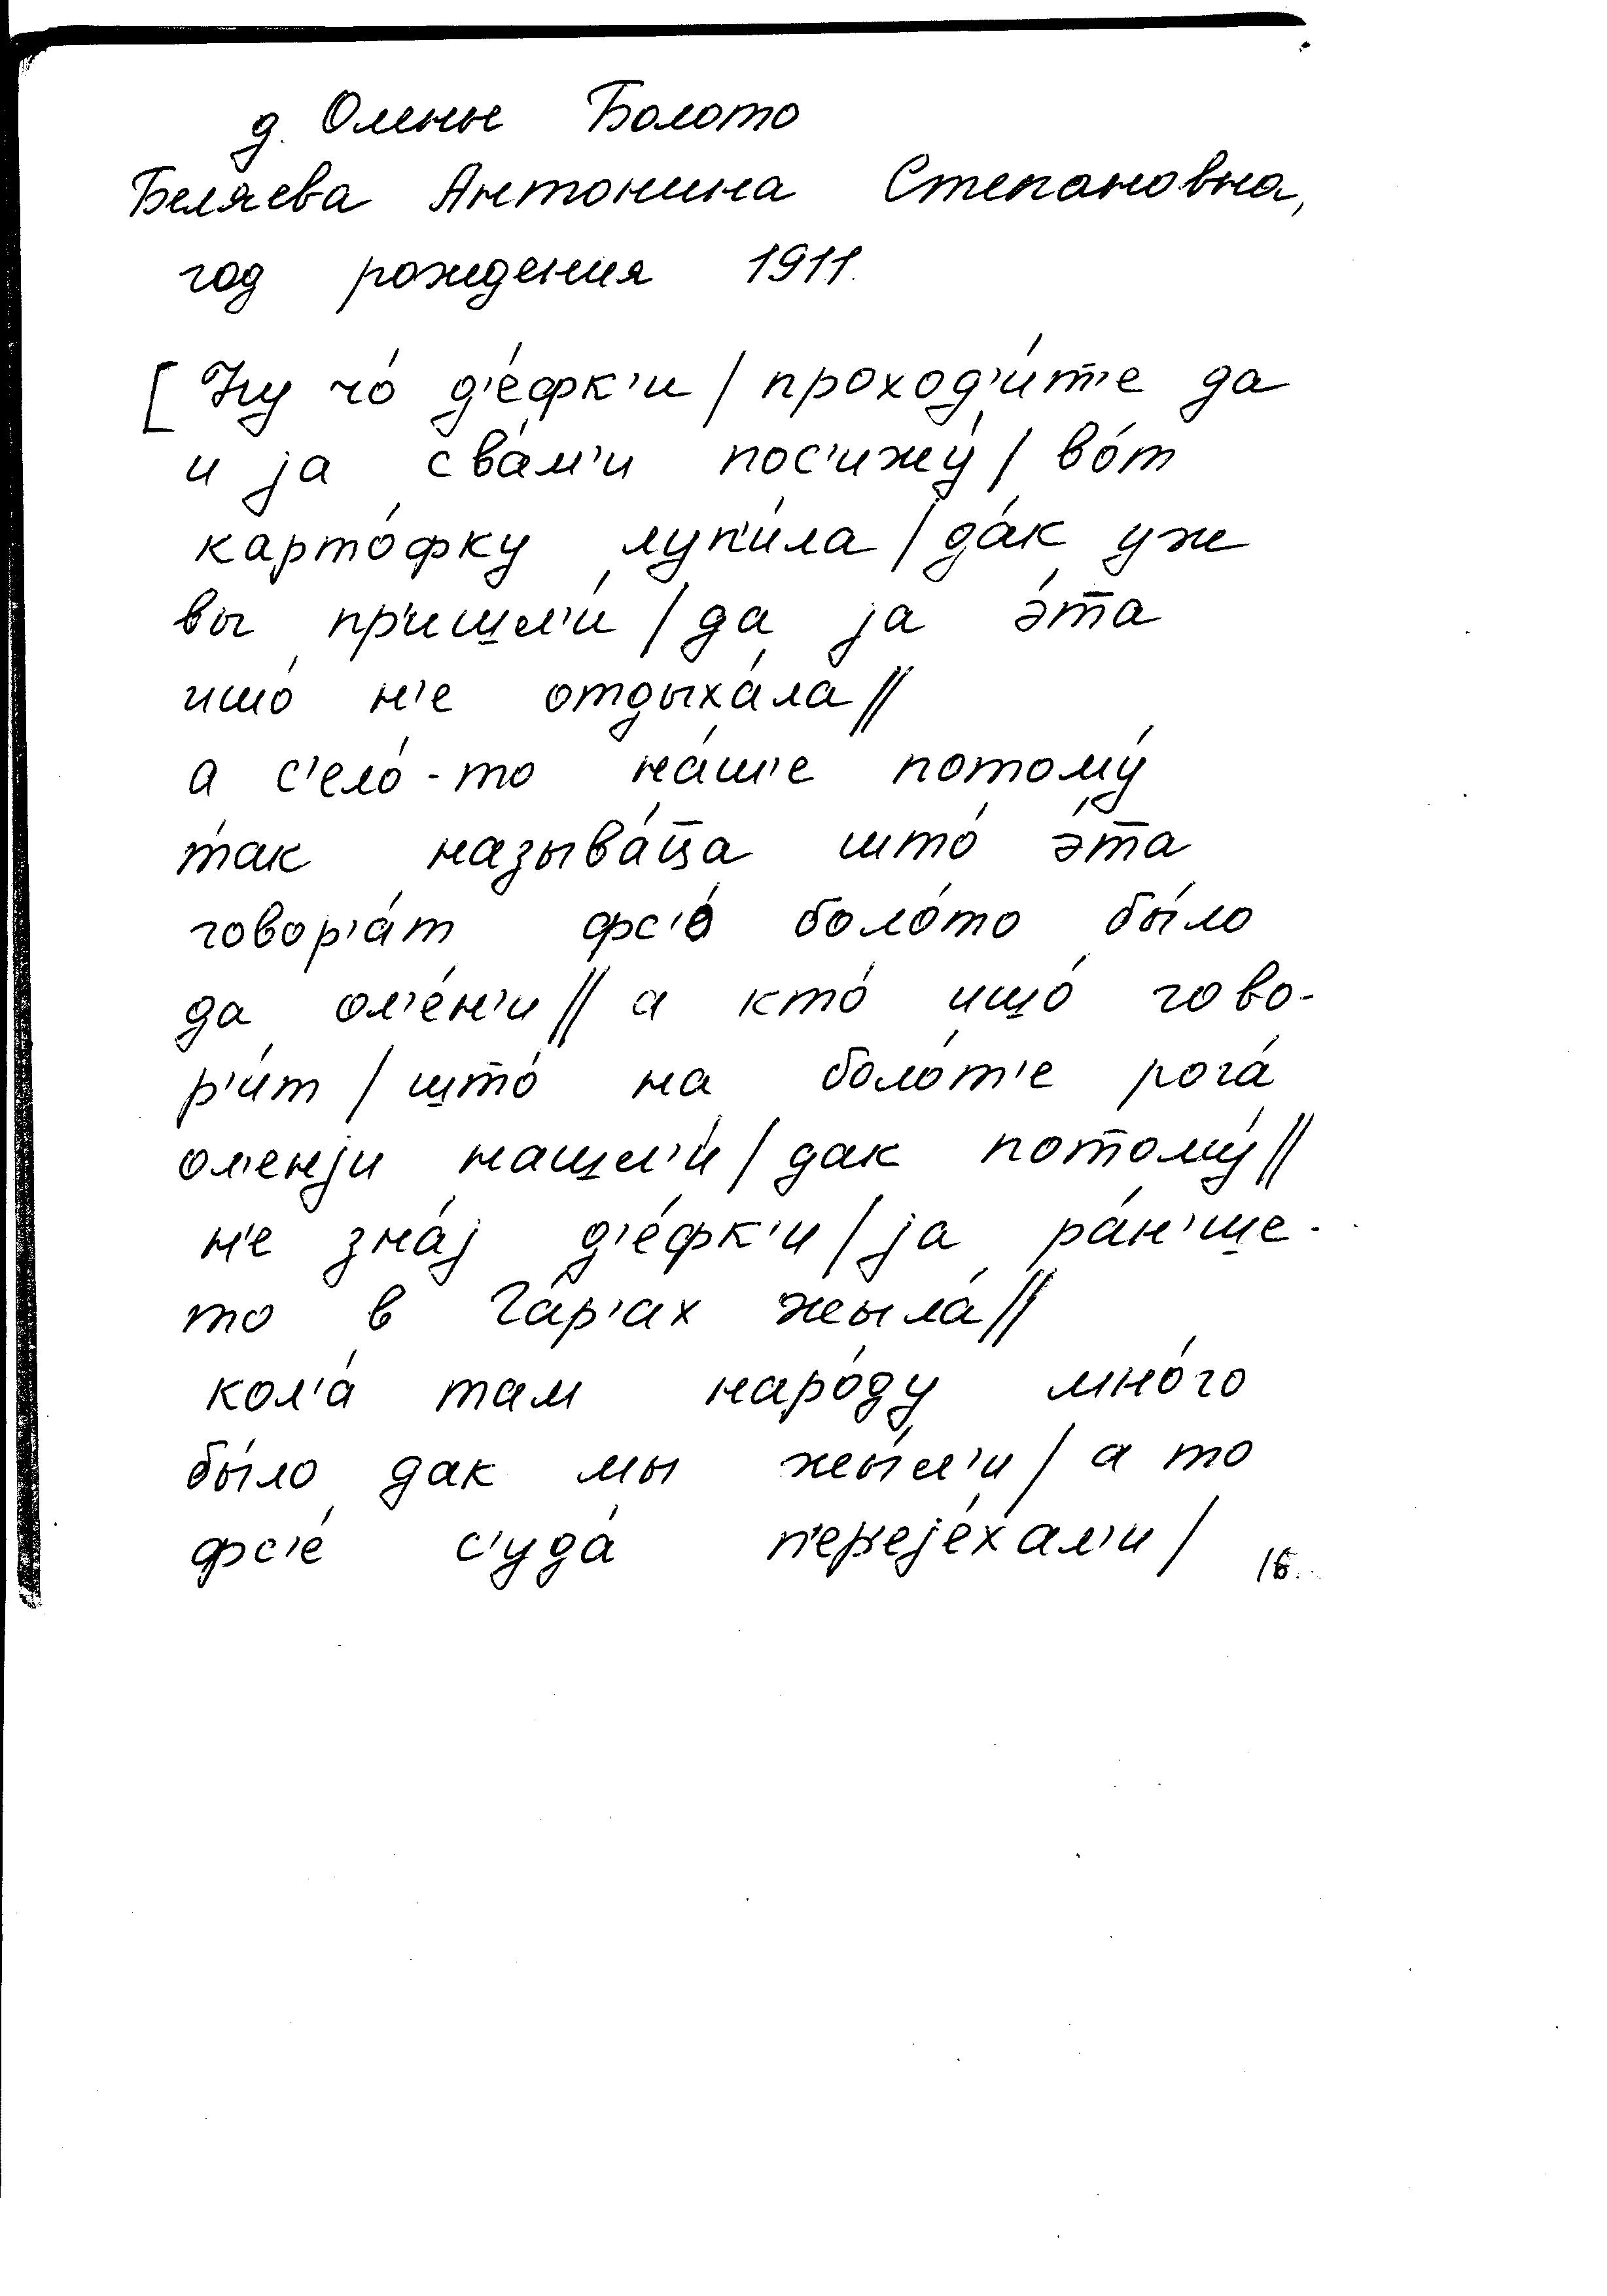 д. Оленье Болото
Беляева Антонина Степановна,
год рождения 1911.
[ Ну чо́ д'е́фк'и / проход'и́т'е да
и jа сва́м'и пос'ижу́ / во́т
карто́фку луп'и́ла / да́к уж
вы пр'ишл'и́ / да jа э́та
ишо́ н'е отдыха́ла //
а с'ело́-то на́ш'е потому́
так называ́ца што́ э́та
говор'а́т фс'о́ боло́то бы́ло
да ол'е́н'и // а кто́ ишо́ гово-
р'и́т / што́ на боло́т'е рога́
ол'енjи нашл'и́ / дак потому́ //
н'е зна́j д'е́фк'и / jа ра́н'ше-
то в Га́р'ах жыла́ //
кол'а́ там наро́ду мно́го
бы́ло дак мы жы́л'и / а то
фс'е́ с'уда́ п'ер'еjе́хал'и /
16.